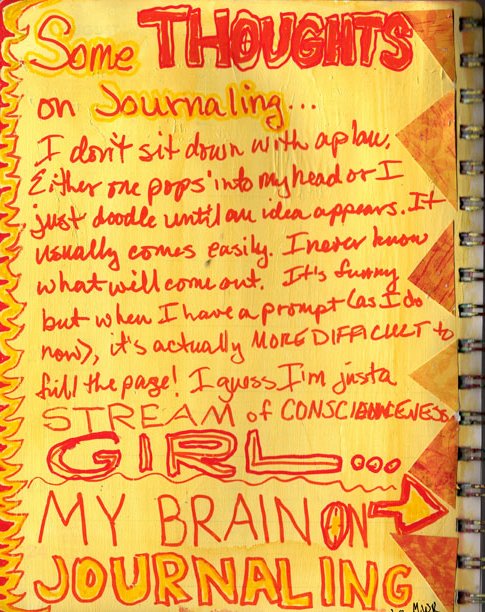 Some THOUGHTS
on Journaling...
I don't sit down with a plan.
Either one pops into my head or I
just doodle until an idea appears. It
usually comes easily. I never know
what will come out. It's funny
but when I have a prompt (as I do
now), it's actually MORE DIFFICULT to
fill the page! I guess I'm just a
STREAM of CONSCIOUNCENESS
GIRL...
MY BRAIN ON
JOURNALING